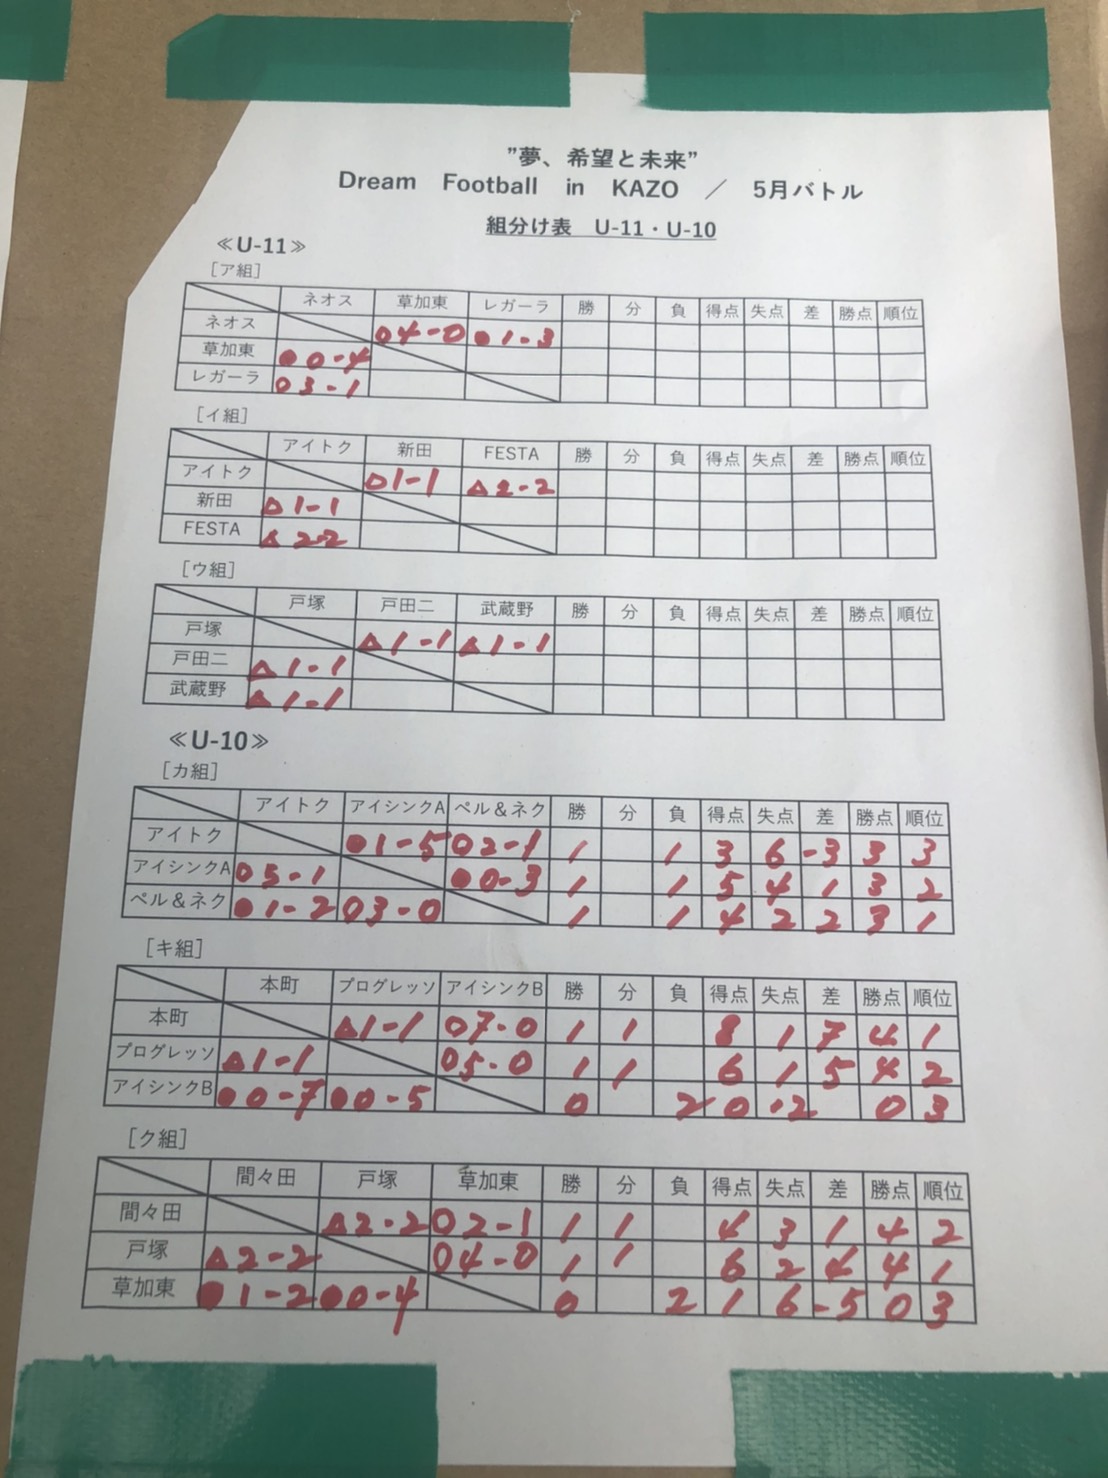 ”夢、希望と未来”
Dream Football in KAZO ／ 5月バトル
組分け表 U-11・U-10
≪U-11≫
［ア組］
ネオス 草加東 レガーラ 勝 分 負 得点 失点 差 勝点 順位
ネオス ○4-0 ●1-3
草加東 ●0-4
レガーラ ○3-1
［イ組］
アイトク 新田 FESTA 勝 分 負 得点 失点 差 勝点 順位
アイトク △1-1 △2-2
新田 △1-1
FESTA △2-2
［ウ組］
戸塚 戸田二 武蔵野 勝 分 負 得点 失点 差 勝点 順位
戸塚 △1-1 △1-1
戸田二 △1-1
武蔵野 △1-1
≪U-10≫
［カ組］
アイトク アイシンクA ペル＆ネク 勝 分 負 得点 失点 差 勝点 順位
アイトク ●1-5 ○2-1 1 1 3 6 -3 3 3
アイシンクA ○5-1 ●0-3 1 1 5 4 1 3 2
ペル＆ネク ●1-2 ○3-0 1 1 4 2 2 3 1
［キ組］
本町 プログレッソ アイシンクB 勝 分 負 得点 失点 差 勝点 順位
本町 △1-1 ○7-0 1 1 8 1 7 4 1
プログレッソ △1-1 ○5-0 1 1 6 1 5 4 2
アイシンクB ●0-7 ●0-5 0 2 0 -2 0 3
［ク組］
間々田 戸塚 草加東 勝 分 負 得点 失点 差 勝点 順位
間々田 △2-2 ○2-1 1 1 4 3 1 4 2
戸塚 △2-2 ○4-0 1 1 6 2 4 4 1
草加東 ●1-2 ●0-4 0 2 1 6 -5 0 3